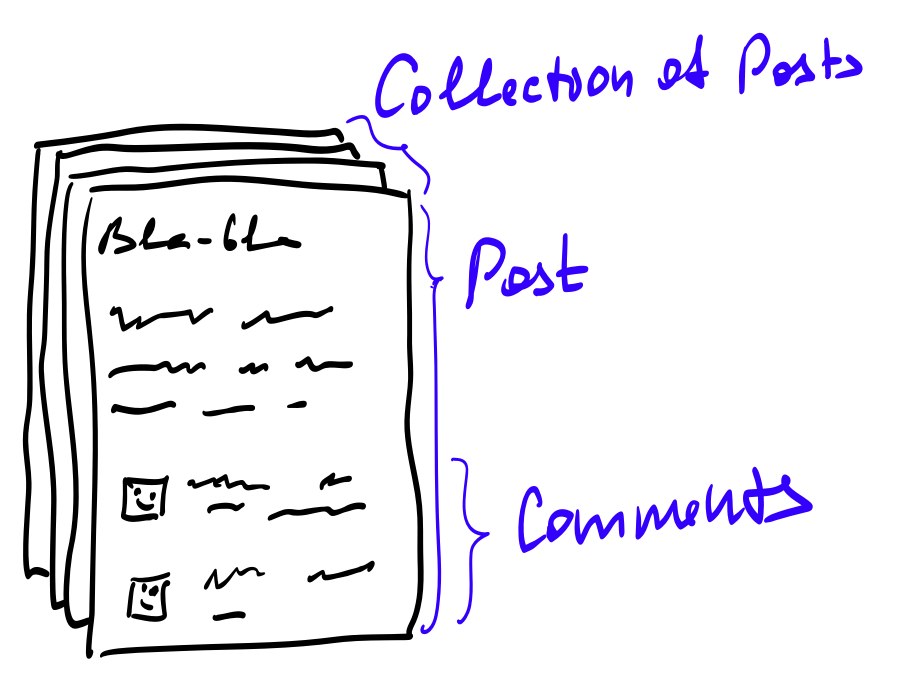 Collection of Posts
Bla-bla
Post
Comments